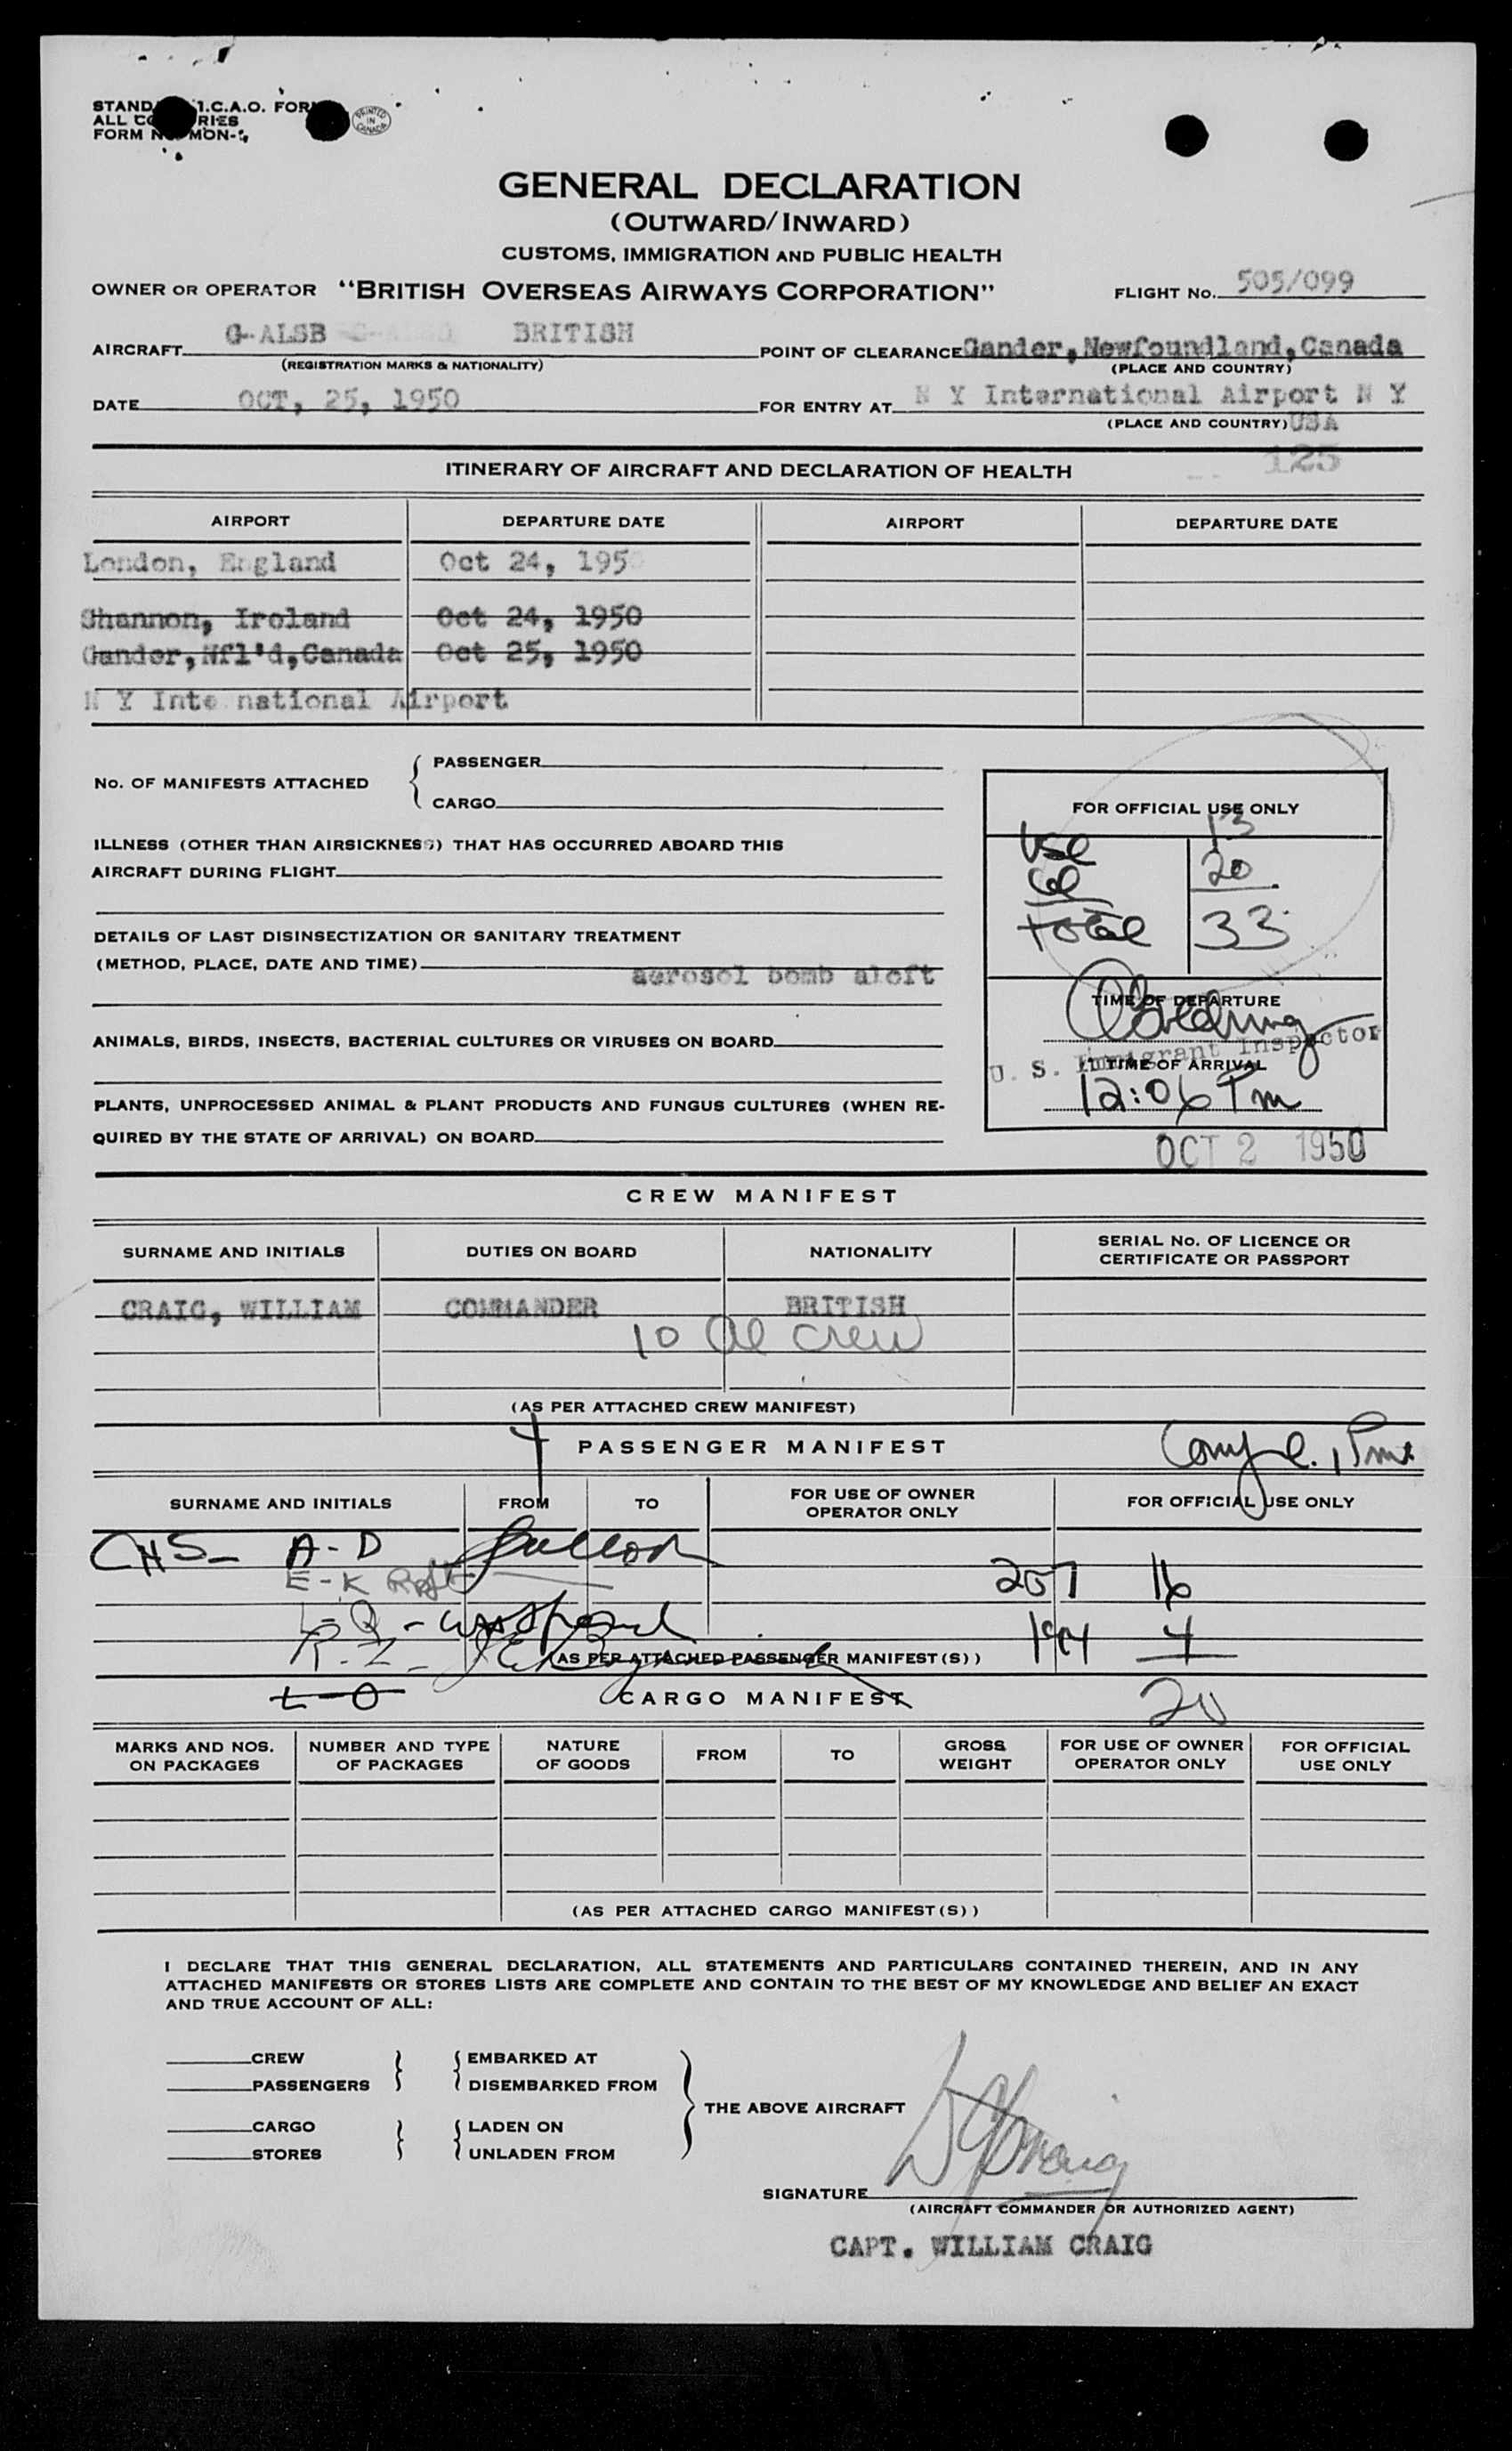 STAND I.C.A.O. FOR
ALL CO RIES
FORM N MON-
PRINTED IN CANADA
GENERAL DECLARATION
(OUTWARD/INWARD)
CUSTOMS, IMMIGRATION AND PUBLIC HEALTH
OWNER OR OPERATOR "BRITISH OVERSEAS AIRWAYS CORPORATION" FLIGHT No. 505/099
AIRCRAFT G-ALSB BRITISH POINT OF CLEARANCE Gander, Newfoundland, Canada
(REGISTRATION MARKS & NATIONALITY) (PLACE AND COUNTRY)
DATE OCT, 25, 1950 FOR ENTRY AT N Y International Airport N Y
(PLACE AND COUNTRY) USA
125
ITINERARY OF AIRCRAFT AND DECLARATION OF HEALTH
AIRPORT DEPARTURE DATE AIRPORT DEPARTURE DATE
London, England Oct 24, 195
Shannon, Ireland Oct 24, 1950
Gander, Nfl'd, Canada Oct 25, 1950
N Y Inte national Airport
No. OF MANIFESTS ATTACHED
PASSENGER
CARGO
ILLNESS (OTHER THAN AIRSICKNESS) THAT HAS OCCURRED ABOARD THIS
AIRCRAFT DURING FLIGHT
DETAILS OF LAST DISINSECTIZATION OR SANITARY TREATMENT
(METHOD, PLACE, DATE AND TIME) aerosol bomb aloft
ANIMALS, BIRDS, INSECTS, BACTERIAL CULTURES OR VIRUSES ON BOARD
PLANTS, UNPROCESSED ANIMAL & PLANT PRODUCTS AND FUNGUS CULTURES (WHEN RE-
QUIRED BY THE STATE OF ARRIVAL) ON BOARD
FOR OFFICIAL USE ONLY
USC 13
al 20
total 33
TIME OF DEPARTURE
U. S. Immigrant Inspector
TIME OF ARRIVAL
12:06 Pm
OCT 2 1950
CREW MANIFEST
SURNAME AND INITIALS DUTIES ON BOARD NATIONALITY SERIAL No. OF LICENCE OR
CERTIFICATE OR PASSPORT
CRAIG, WILLIAM COMMANDER BRITISH
10 al crew
(AS PER ATTACHED CREW MANIFEST)
PASSENGER MANIFEST
SURNAME AND INITIALS FROM TO FOR USE OF OWNER
OPERATOR ONLY FOR OFFICIAL USE ONLY
CHS- A-D
E-K
207 16
L-Q
R-Z 4
(AS PER ATTACHED PASSENGER MANIFEST(S))
L-O CARGO MANIFEST 20
MARKS AND NOS.
ON PACKAGES NUMBER AND TYPE
OF PACKAGES NATURE
OF GOODS FROM TO GROSS
WEIGHT FOR USE OF OWNER
OPERATOR ONLY FOR OFFICIAL
USE ONLY
(AS PER ATTACHED CARGO MANIFEST(S))
I DECLARE THAT THIS GENERAL DECLARATION, ALL STATEMENTS AND PARTICULARS CONTAINED THEREIN, AND IN ANY
ATTACHED MANIFESTS OR STORES LISTS ARE COMPLETE AND CONTAIN TO THE BEST OF MY KNOWLEDGE AND BELIEF AN EXACT
AND TRUE ACCOUNT OF ALL:
CREW EMBARKED AT
PASSENGERS DISEMBARKED FROM
THE ABOVE AIRCRAFT
CARGO LADEN ON
STORES UNLADEN FROM
SIGNATURE
(AIRCRAFT COMMANDER OR AUTHORIZED AGENT)
CAPT. WILLIAM CRAIG